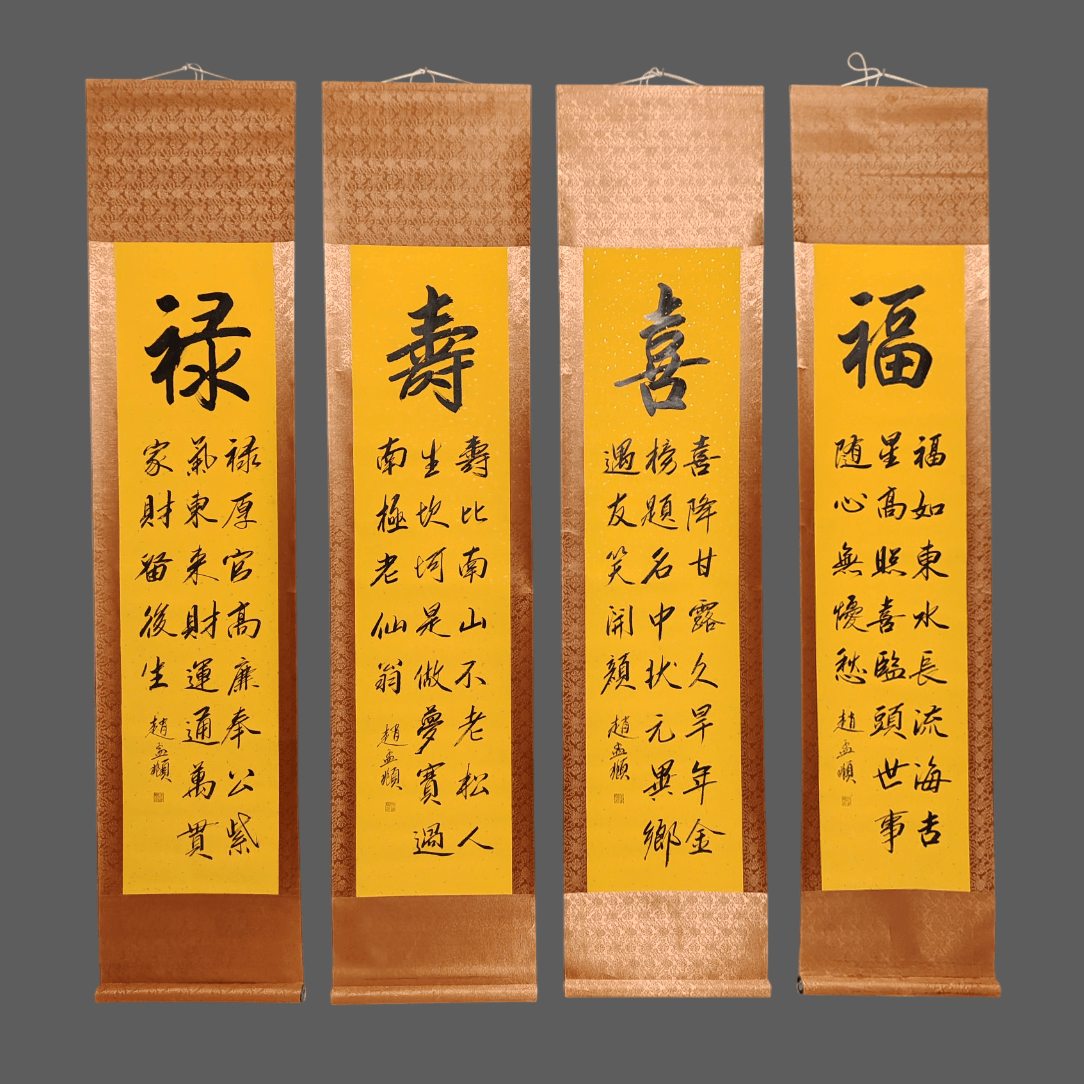 福
福如東水長流海吉
星高照喜臨頭世事
随心無懮愁
趙孟頫
喜
喜降甘露久旱年金
榜題名中状元異鄉
遇友笑開顏
趙孟頫
壽
壽比南山不老松人
生坎坷是做夢賽過
南極老仙翁
趙孟頫
禄
禄厚官高廉奉公紫
氣東来財運通萬貫
家財留後生
趙孟頫